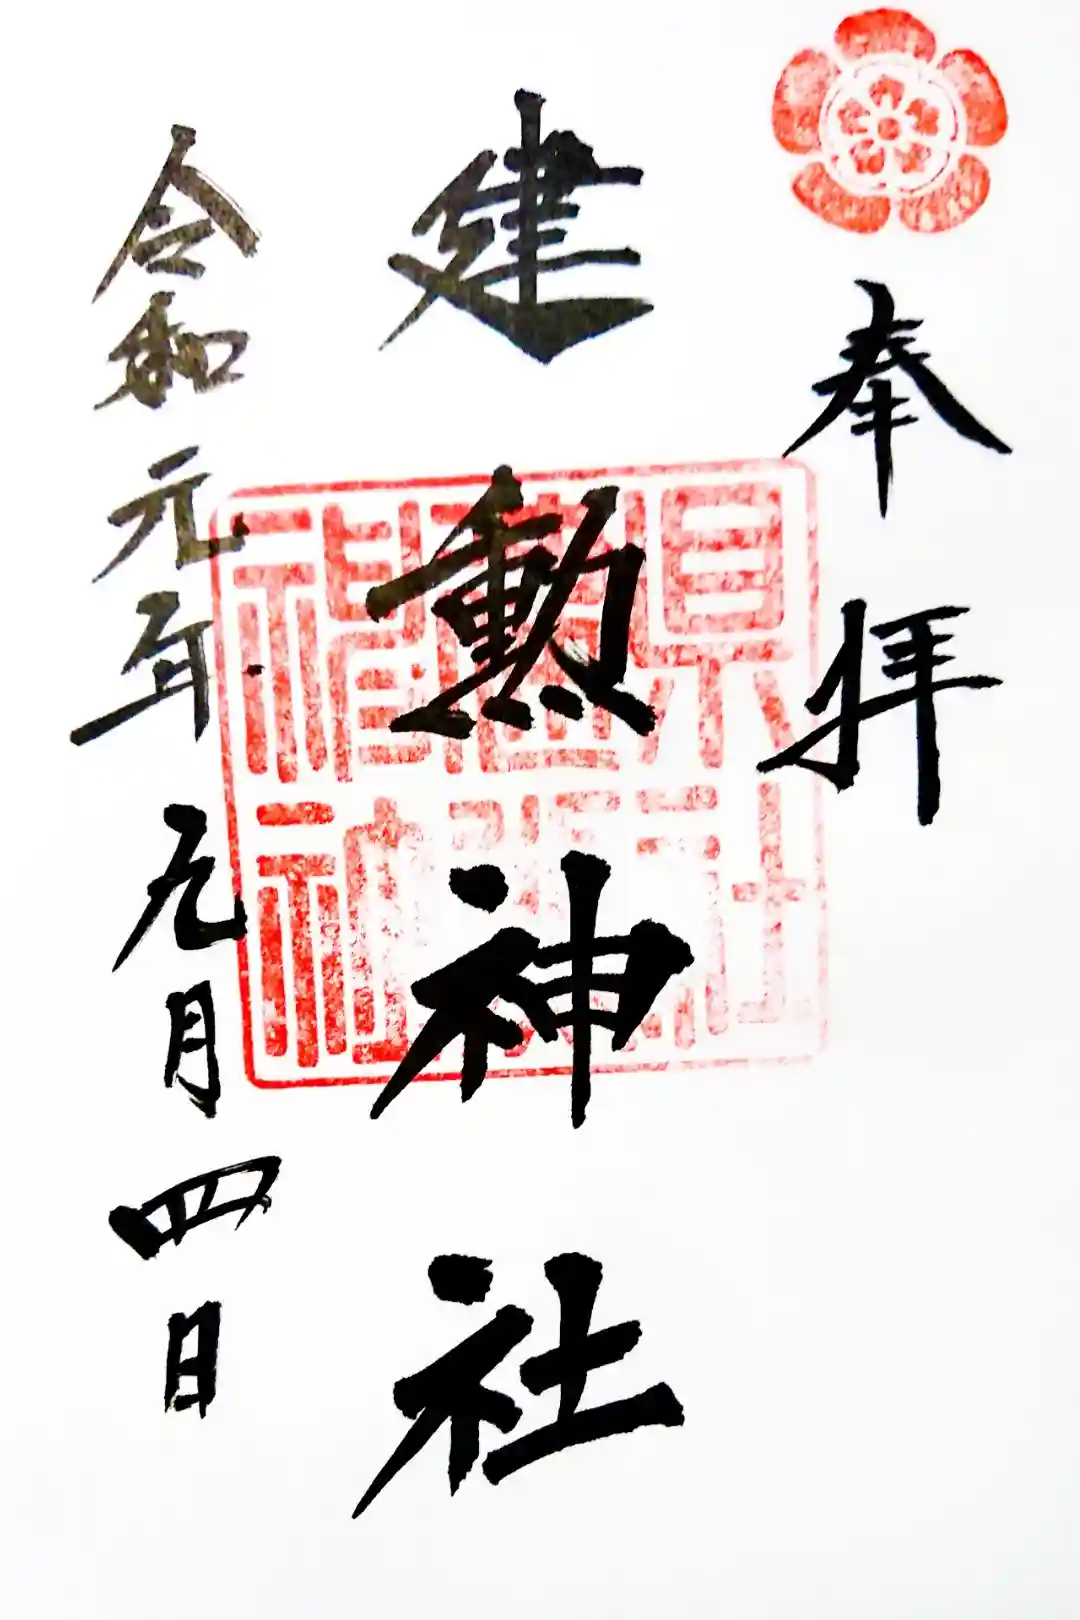 奉拝
建勲神社
令和元年九月四日